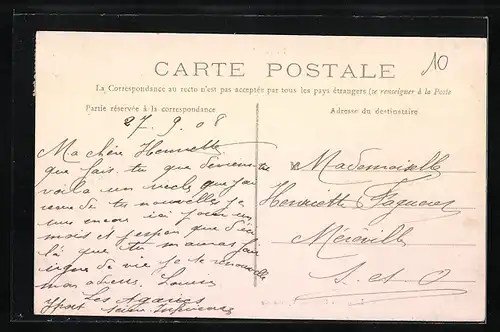 10
CARTE POSTALE
La Correspondance au recto n'est pas acceptée par tous les pays étrangers (se renseigner à la Poste
Partie réservée à la correspondance
Adresse du destinataire
27. 9. 08
Ma chère Henriette
que fais tu que deviens-tu
voilà un siècle que j'ai
de tes nouvelles je
suis encore ici pour un
mois et j'espère que d'ici
là que tu m'auras fait
signe de vie je te renouvelle
mon adresse. Louise
Les
Yport Seine Inférieure
Mademoiselle
Henriette
Méréville
S. et O